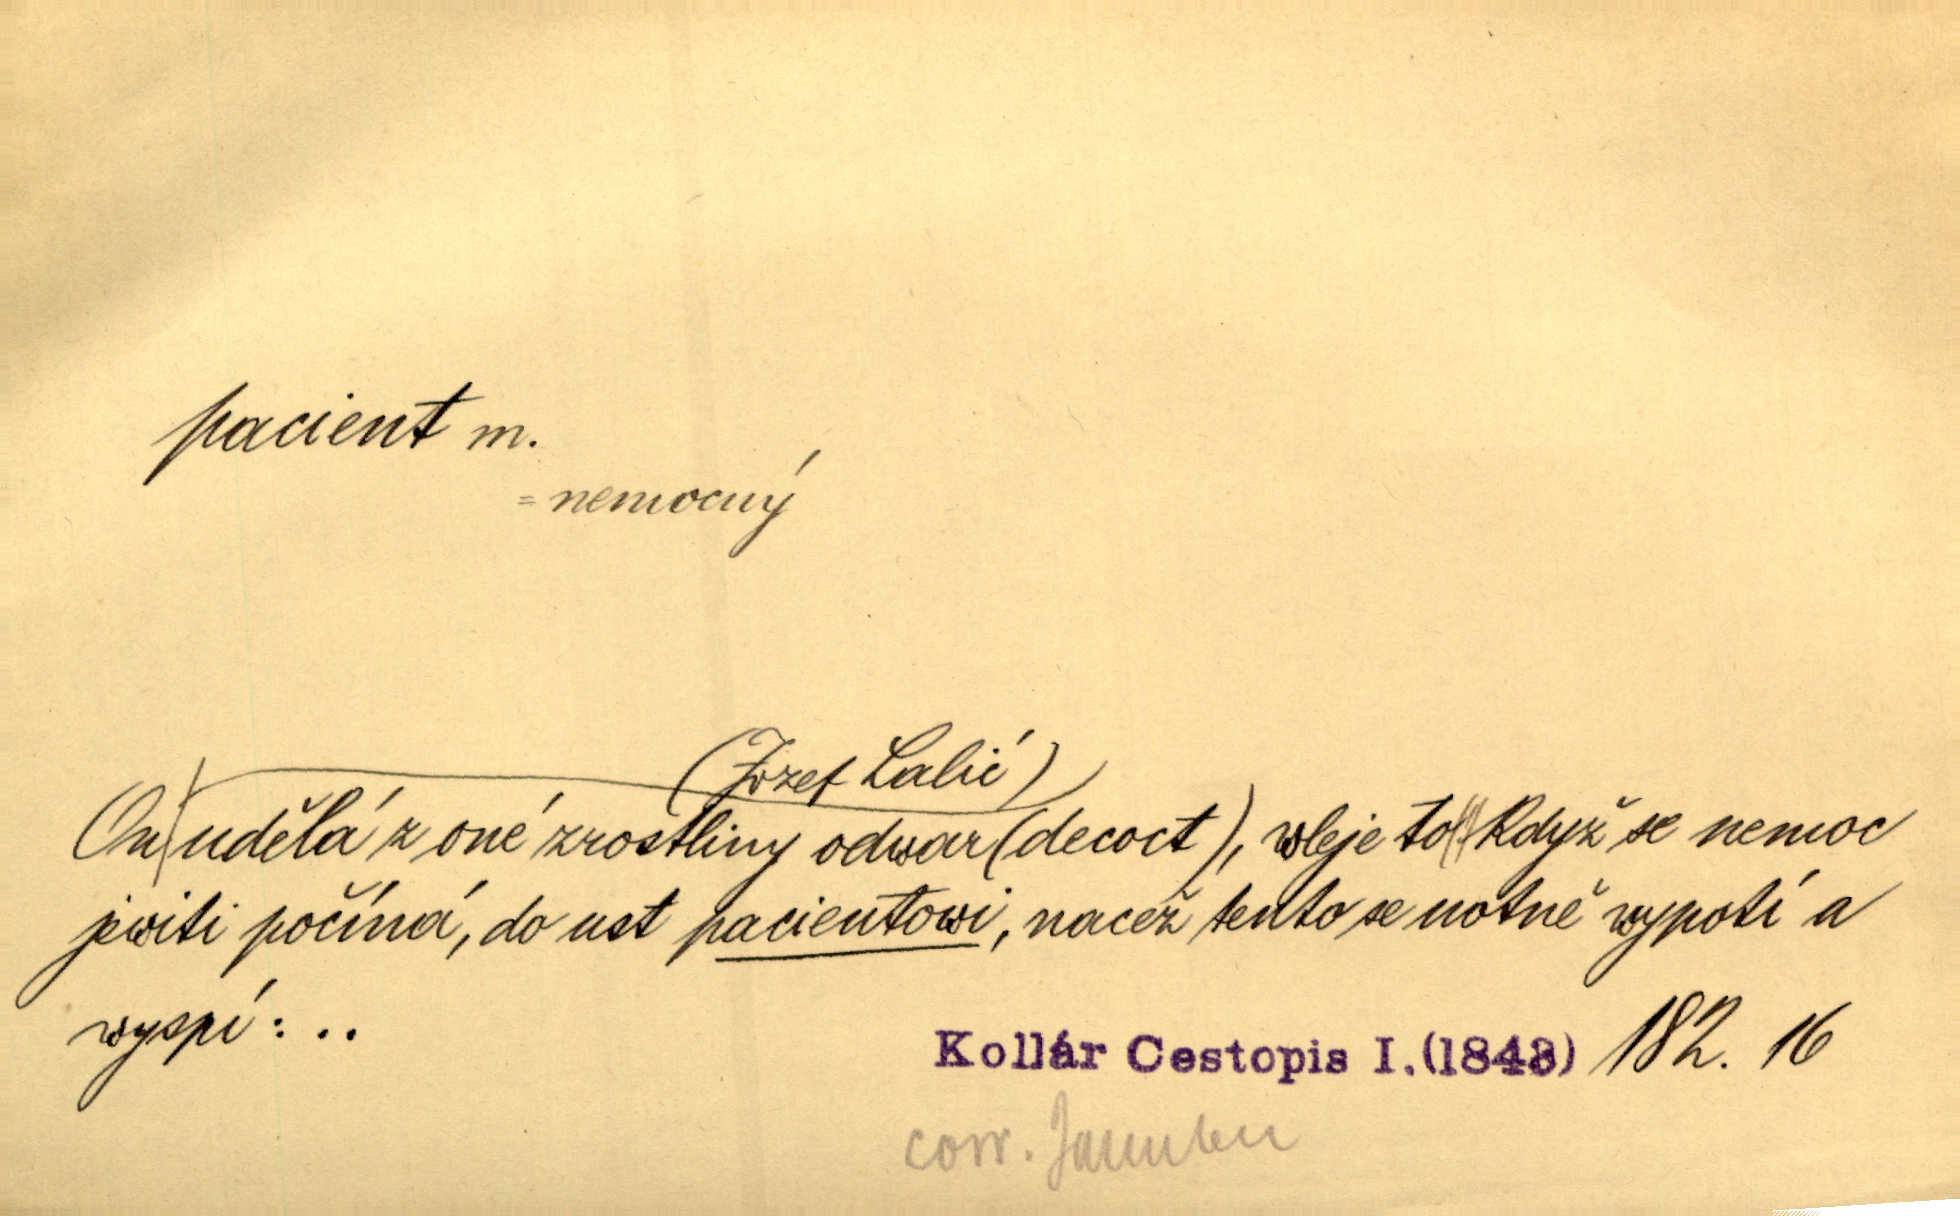 pacient m.
= nemocný
(Jozef Lalić)
On udělá z oné zrostliny odwar (decoct), wleje to když se nemoc
jewiti počíná, do ust pacientowi, nacež tento se notně wypotí a
wyspí: ..
Kollár Cestopis I. (1843) 182. 16
corr.